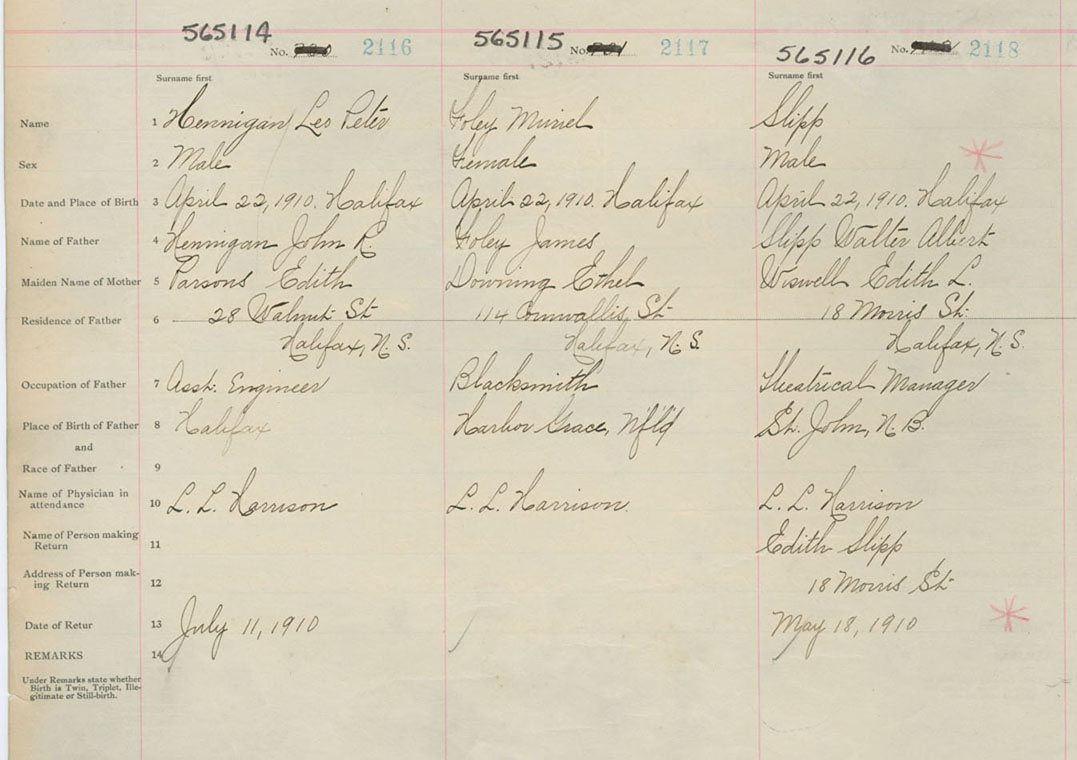 565114 565115 565116
No. 2116 No. 2117 No. 2118
Surname first Surname first Surname first
Name 1 Hennigan Leo Peter Foley Muriel Slipp
Sex 2 Male Female Male
Date and Place of Birth 3 April 22, 1910. Halifax April 22, 1910. Halifax April 22, 1910. Halifax
Name of Father 4 Hennigan John R. Foley James Slipp Walter Albert
Maiden Name of Mother 5 Parsons Edith Downing Ethel Wiswell Edith L.
Residence of Father 6 28 Walnut St 114 Cornwallis St 18 Morris St.
Halifax, N. S. Halifax, N. S. Halifax, N. S.
Occupation of Father 7 Asst. Engineer Blacksmith Theatrical Manager
Place of Birth of Father 8 Halifax Harbor Grace, Nfld St. John, N. B.
and
Race of Father 9
Name of Physician in
attendance 10 L. L. Harrison L. L. Harrison L. L. Harrison
Name of Person making
Return 11 Edith Slipp
Address of Person mak-
ing Return 12 18 Morris St
Date of Retur 13 July 11, 1910 May 18, 1910
REMARKS 14
Under Remarks state whether
Birth is Twin, Triplet, Ille-
gitimate or Still-birth.